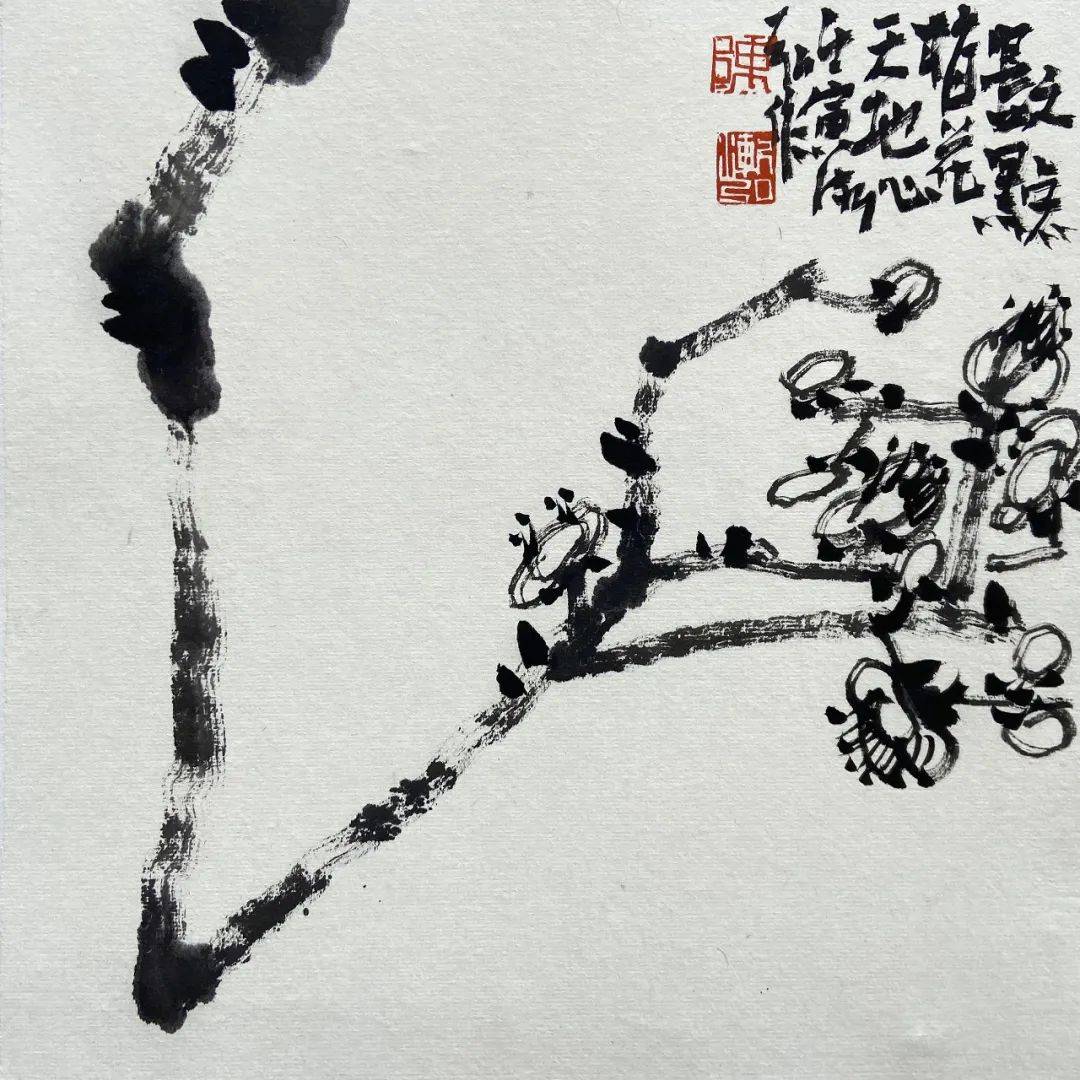 數點
梅花
天地心
壬寅
陳